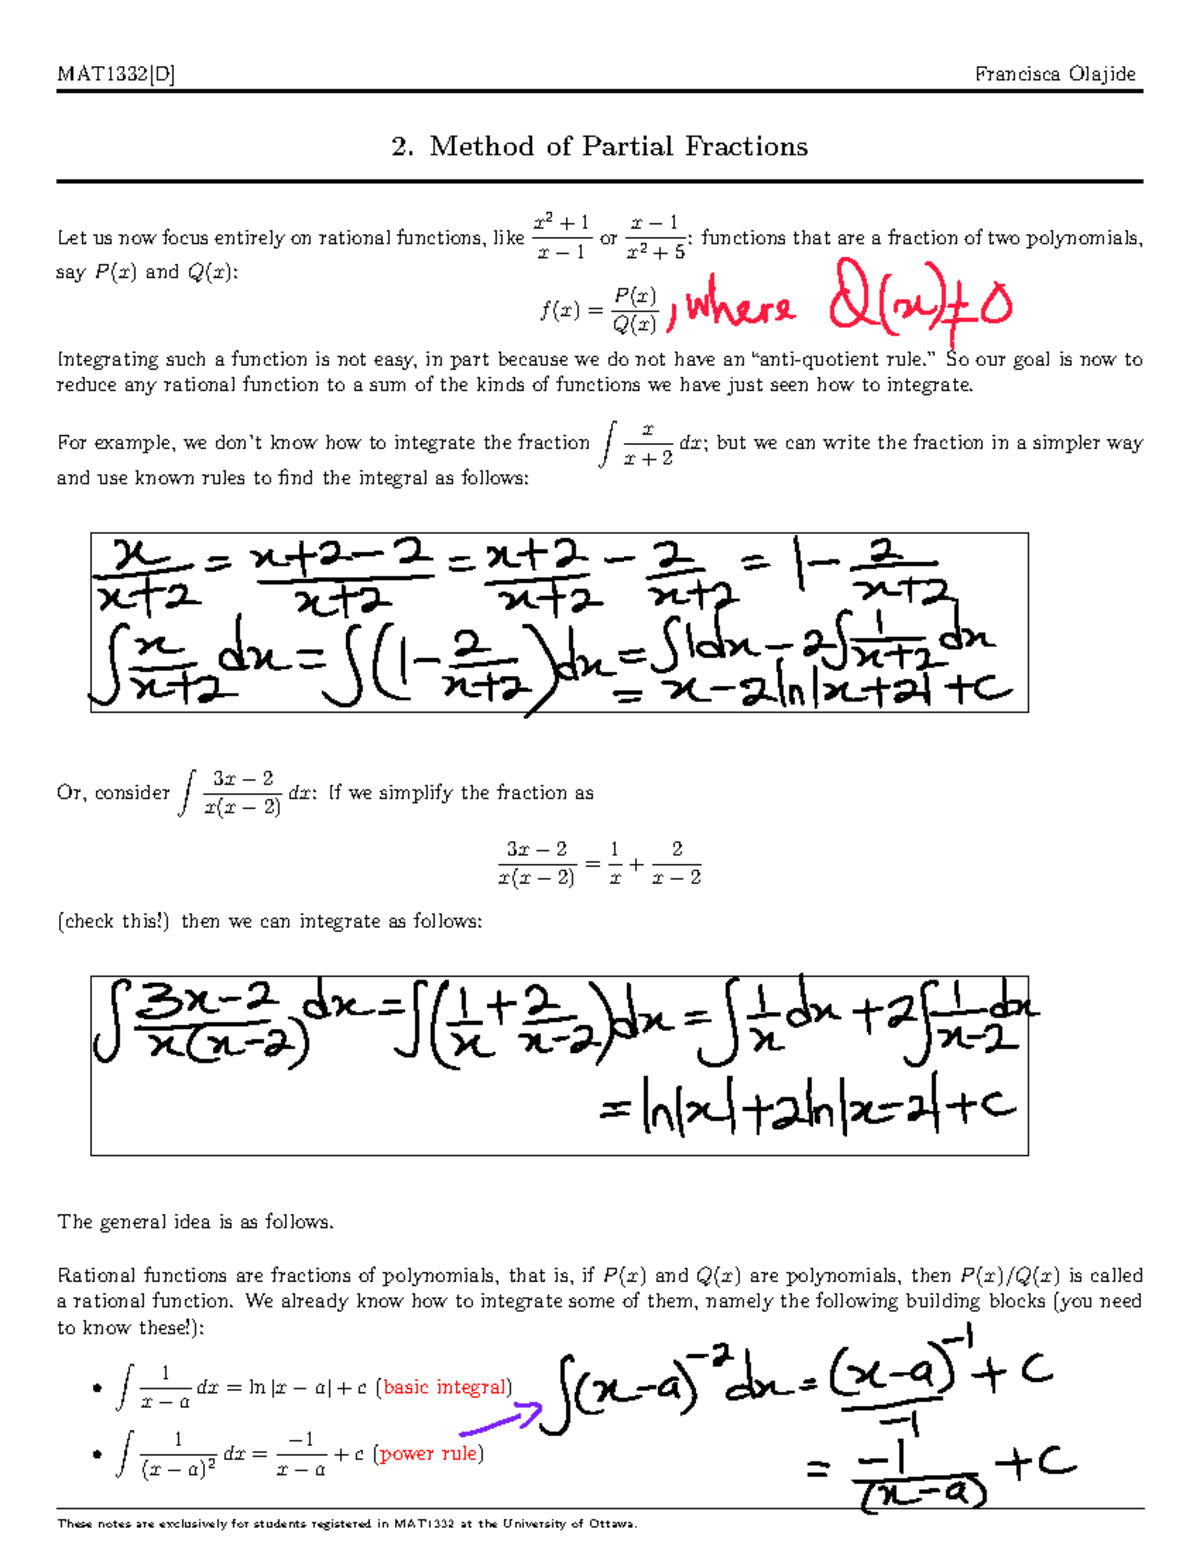 MAT1332[D] Francisca Olajide
2. Method of Partial Fractions
Let us now focus entirely on rational functions, like \frac{x^2+1}{x-1} or \frac{x-1}{x^2+5}: functions that are a fraction of two polynomials,
say P(x) and Q(x):
f(x) = \frac{P(x)}{Q(x)}, where Q(x) ≠ 0
Integrating such a function is not easy, in part because we do not have an “anti-quotient rule.” So our goal is now to
reduce any rational function to a sum of the kinds of functions we have just seen how to integrate.
For example, we don't know how to integrate the fraction ∫ \frac{x}{x+2} dx; but we can write the fraction in a simpler way
and use known rules to find the integral as follows:
\frac{x}{x+2} = \frac{x+2-2}{x+2} = \frac{x+2}{x+2} - \frac{2}{x+2} = 1 - \frac{2}{x+2}
∫ \frac{x}{x+2} dx = ∫ (1 - \frac{2}{x+2}) dx = ∫ 1dx - 2∫ \frac{1}{x+2} dx
= x - 2ln|x+2| + c
Or, consider ∫ \frac{3x-2}{x(x-2)} dx: If we simplify the fraction as
\frac{3x-2}{x(x-2)} = \frac{1}{x} + \frac{2}{x-2}
(check this!) then we can integrate as follows:
∫ \frac{3x-2}{x(x-2)} dx = ∫ (\frac{1}{x} + \frac{2}{x-2}) dx = ∫ \frac{1}{x} dx + 2∫ \frac{1}{x-2} dx
= ln|x| + 2ln|x-2| + c
The general idea is as follows.
Rational functions are fractions of polynomials, that is, if P(x) and Q(x) are polynomials, then P(x)/Q(x) is called
a rational function. We already know how to integrate some of them, namely the following building blocks (you need
to know these!):
• ∫ \frac{1}{x-a} dx = ln |x - a| + c (basic integral)
• ∫ \frac{1}{(x-a)^2} dx = \frac{-1}{x-a} + c (power rule)
∫ (x-a)^{-2} dx = \frac{(x-a)^{-1}}{-1} + c
= \frac{-1}{(x-a)} + c
These notes are exclusively for students registered in MAT1332 at the University of Ottawa.